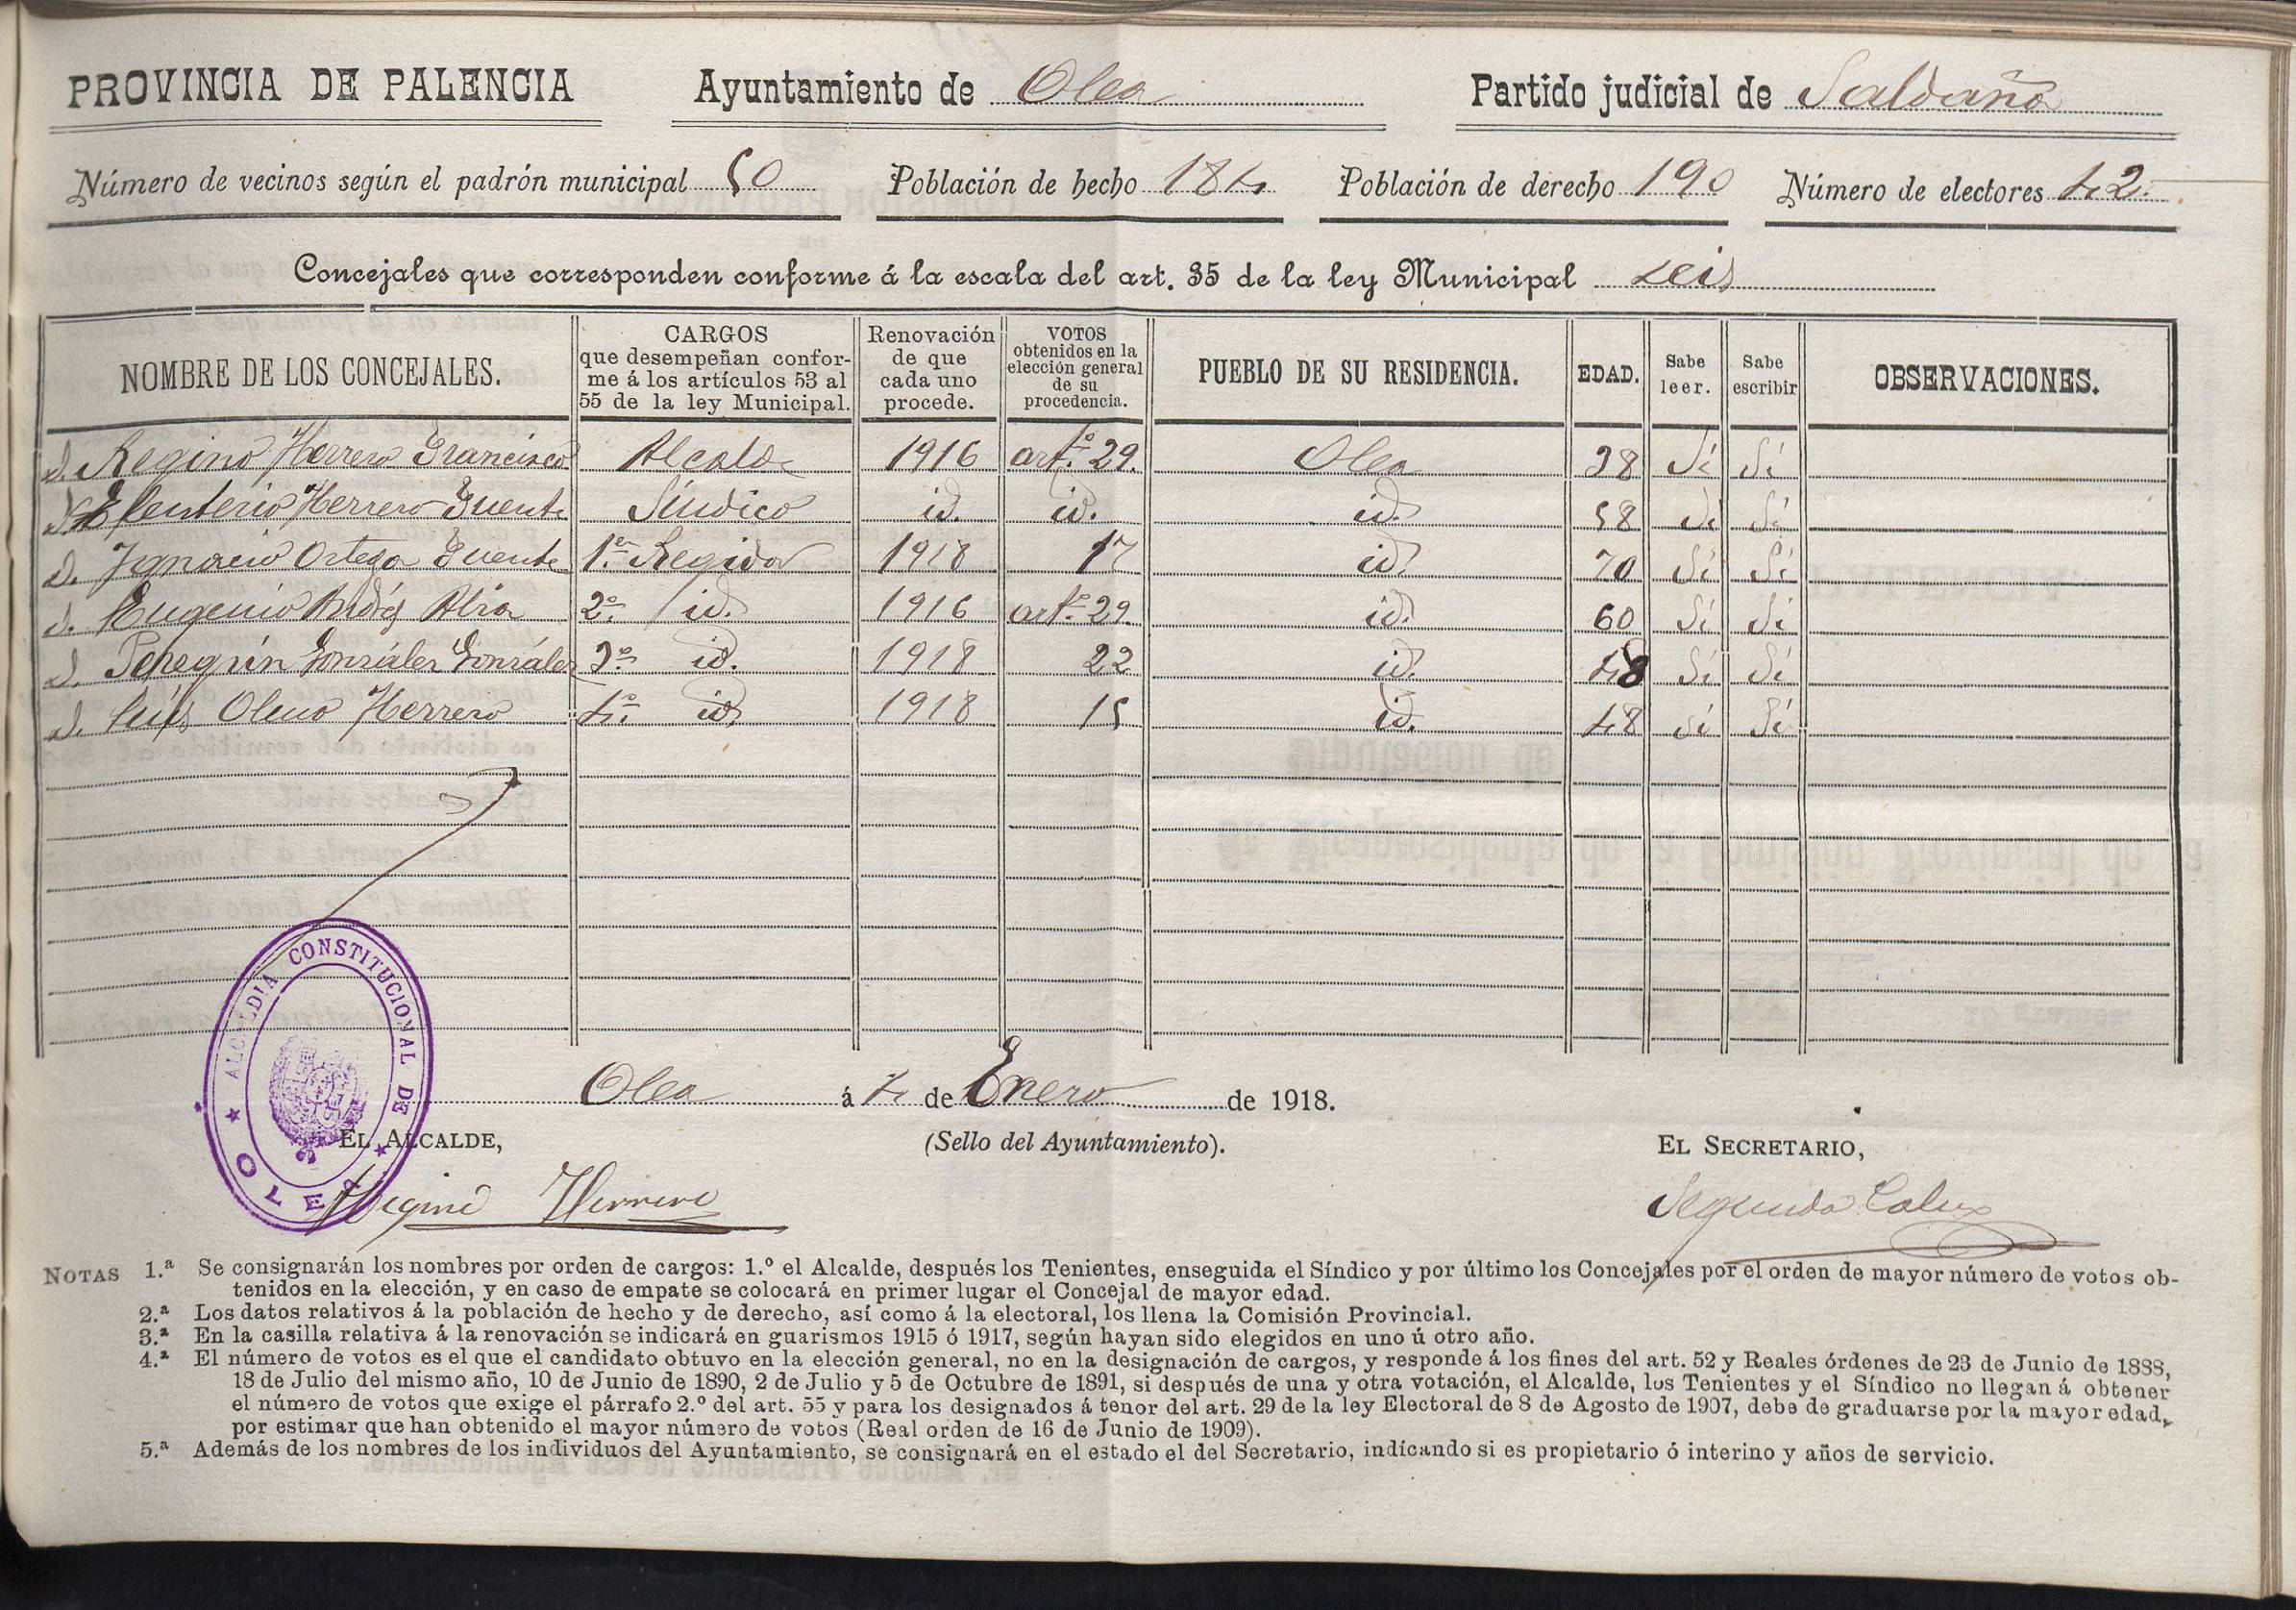 PROVINCIA DE PALENCIA Ayuntamiento de Olea Partido judicial de Saldaña
Número de vecinos según el padrón municipal 50 Población de hecho 184 Población de derecho 190 Número de electores 42
Concejales que corresponden conforme á la escala del art. 35 de la ley Municipal seis
NOMBRE DE LOS CONCEJALES. CARGOS que desempeñan confor-me á los artículos 53 al 55 de la ley Municipal. Renovación de que cada uno procede. VOTOS obtenidos en la elección general de su procedencia. PUEBLO DE SU RESIDENCIA. EDAD. Sabe leer. Sabe escribir OBSERVACIONES.
D. Regino Herrero Francisco Alcalde 1916 artº. 29. Olea 38 Sí Sí
D. Eleuterio Herrero Fuente Síndico id. id. id. 58 Sí Sí
D. Ignacio Ortega Fuente 1er. Regidor 1918 17 id. 70 Sí Sí
D. Eugenio Andrés Abia 2º. id. 1916 artº. 29. id. 60 Sí Sí
D. Peregrín González González 3º. id. 1918 22 id. 48 Sí Sí
D. Luis Olmo Herrero 4º. id. 1918 15 id. 48 Sí Sí
ALCALDIA CONSTITUCIONAL DE
OLEA
Olea á 4 de Enero de 1918.
EL ALCALDE, (Sello del Ayuntamiento). EL SECRETARIO,
Regino Herrero Segundo
NOTAS 1.ª Se consignarán los nombres por orden de cargos: 1.º el Alcalde, después los Tenientes, enseguida el Síndico y por último los Concejales por el orden de mayor número de votos ob-
tenidos en la elección, y en caso de empate se colocará en primer lugar el Concejal de mayor edad.
2.ª Los datos relativos á la población de hecho y de derecho, así como á la electoral, los llena la Comisión Provincial.
3.ª En la casilla relativa á la renovación se indicará en guarismos 1915 ó 1917, según hayan sido elegidos en uno ú otro año.
4.ª El número de votos es el que el candidato obtuvo en la elección general, no en la designación de cargos, y responde á los fines del art. 52 y Reales órdenes de 23 de Junio de 1888,
18 de Julio del mismo año, 10 de Junio de 1890, 2 de Julio y 5 de Octubre de 1891, si después de una y otra votación, el Alcalde, los Tenientes y el Síndico no llegan á obtener
el número de votos que exige el párrafo 2.º del art. 55 y para los designados á tenor del art. 29 de la ley Electoral de 8 de Agosto de 1907, debe de graduarse por la mayor edad,
por estimar que han obtenido el mayor número de votos (Real orden de 16 de Junio de 1909).
5.ª Además de los nombres de los individuos del Ayuntamiento, se consignará en el estado el del Secretario, indicando si es propietario ó interino y años de servicio.